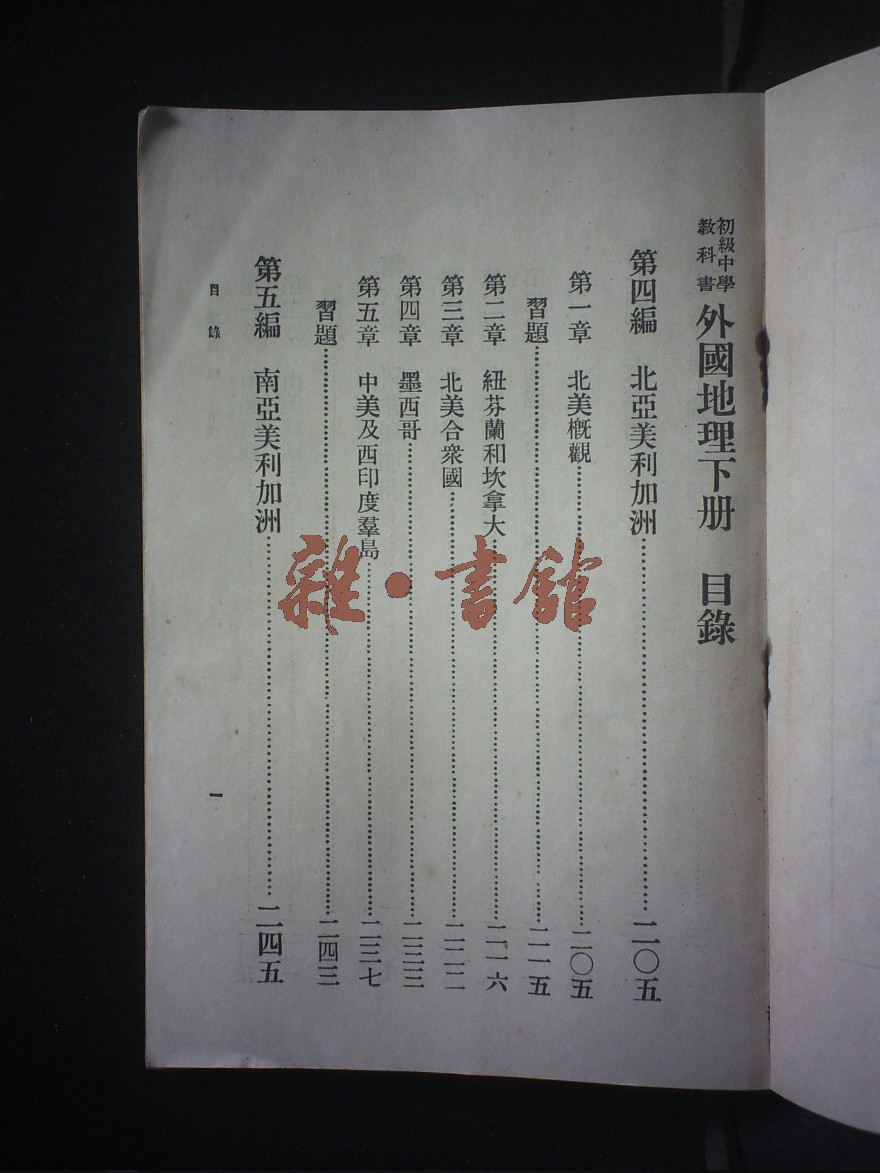 初級中學
教科書
外國地理下册 目錄
第四編 北亞美利加洲……二〇五
第一章 北美概觀……二〇五
習題……二一五
第二章 紐芬蘭和坎拿大……二一六
第三章 北美合衆國……二二二
第四章 墨西哥……二三三
第五章 中美及西印度羣島……二三七
習題……二四三
第五編 南亞美利加洲……二四五
目錄 一
雜·書館